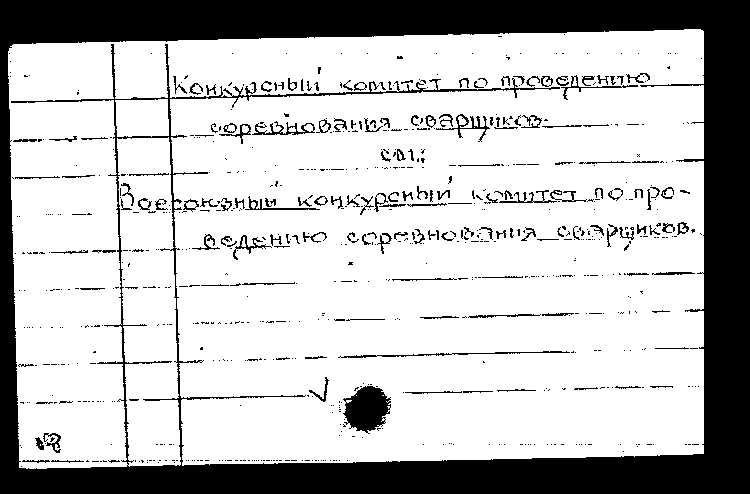 Конкурсный комитет по проведению
соревнования сварщиков.
см.:
Всесоюзный конкурсный комитет по про-
ведению соревнования сварщиков.